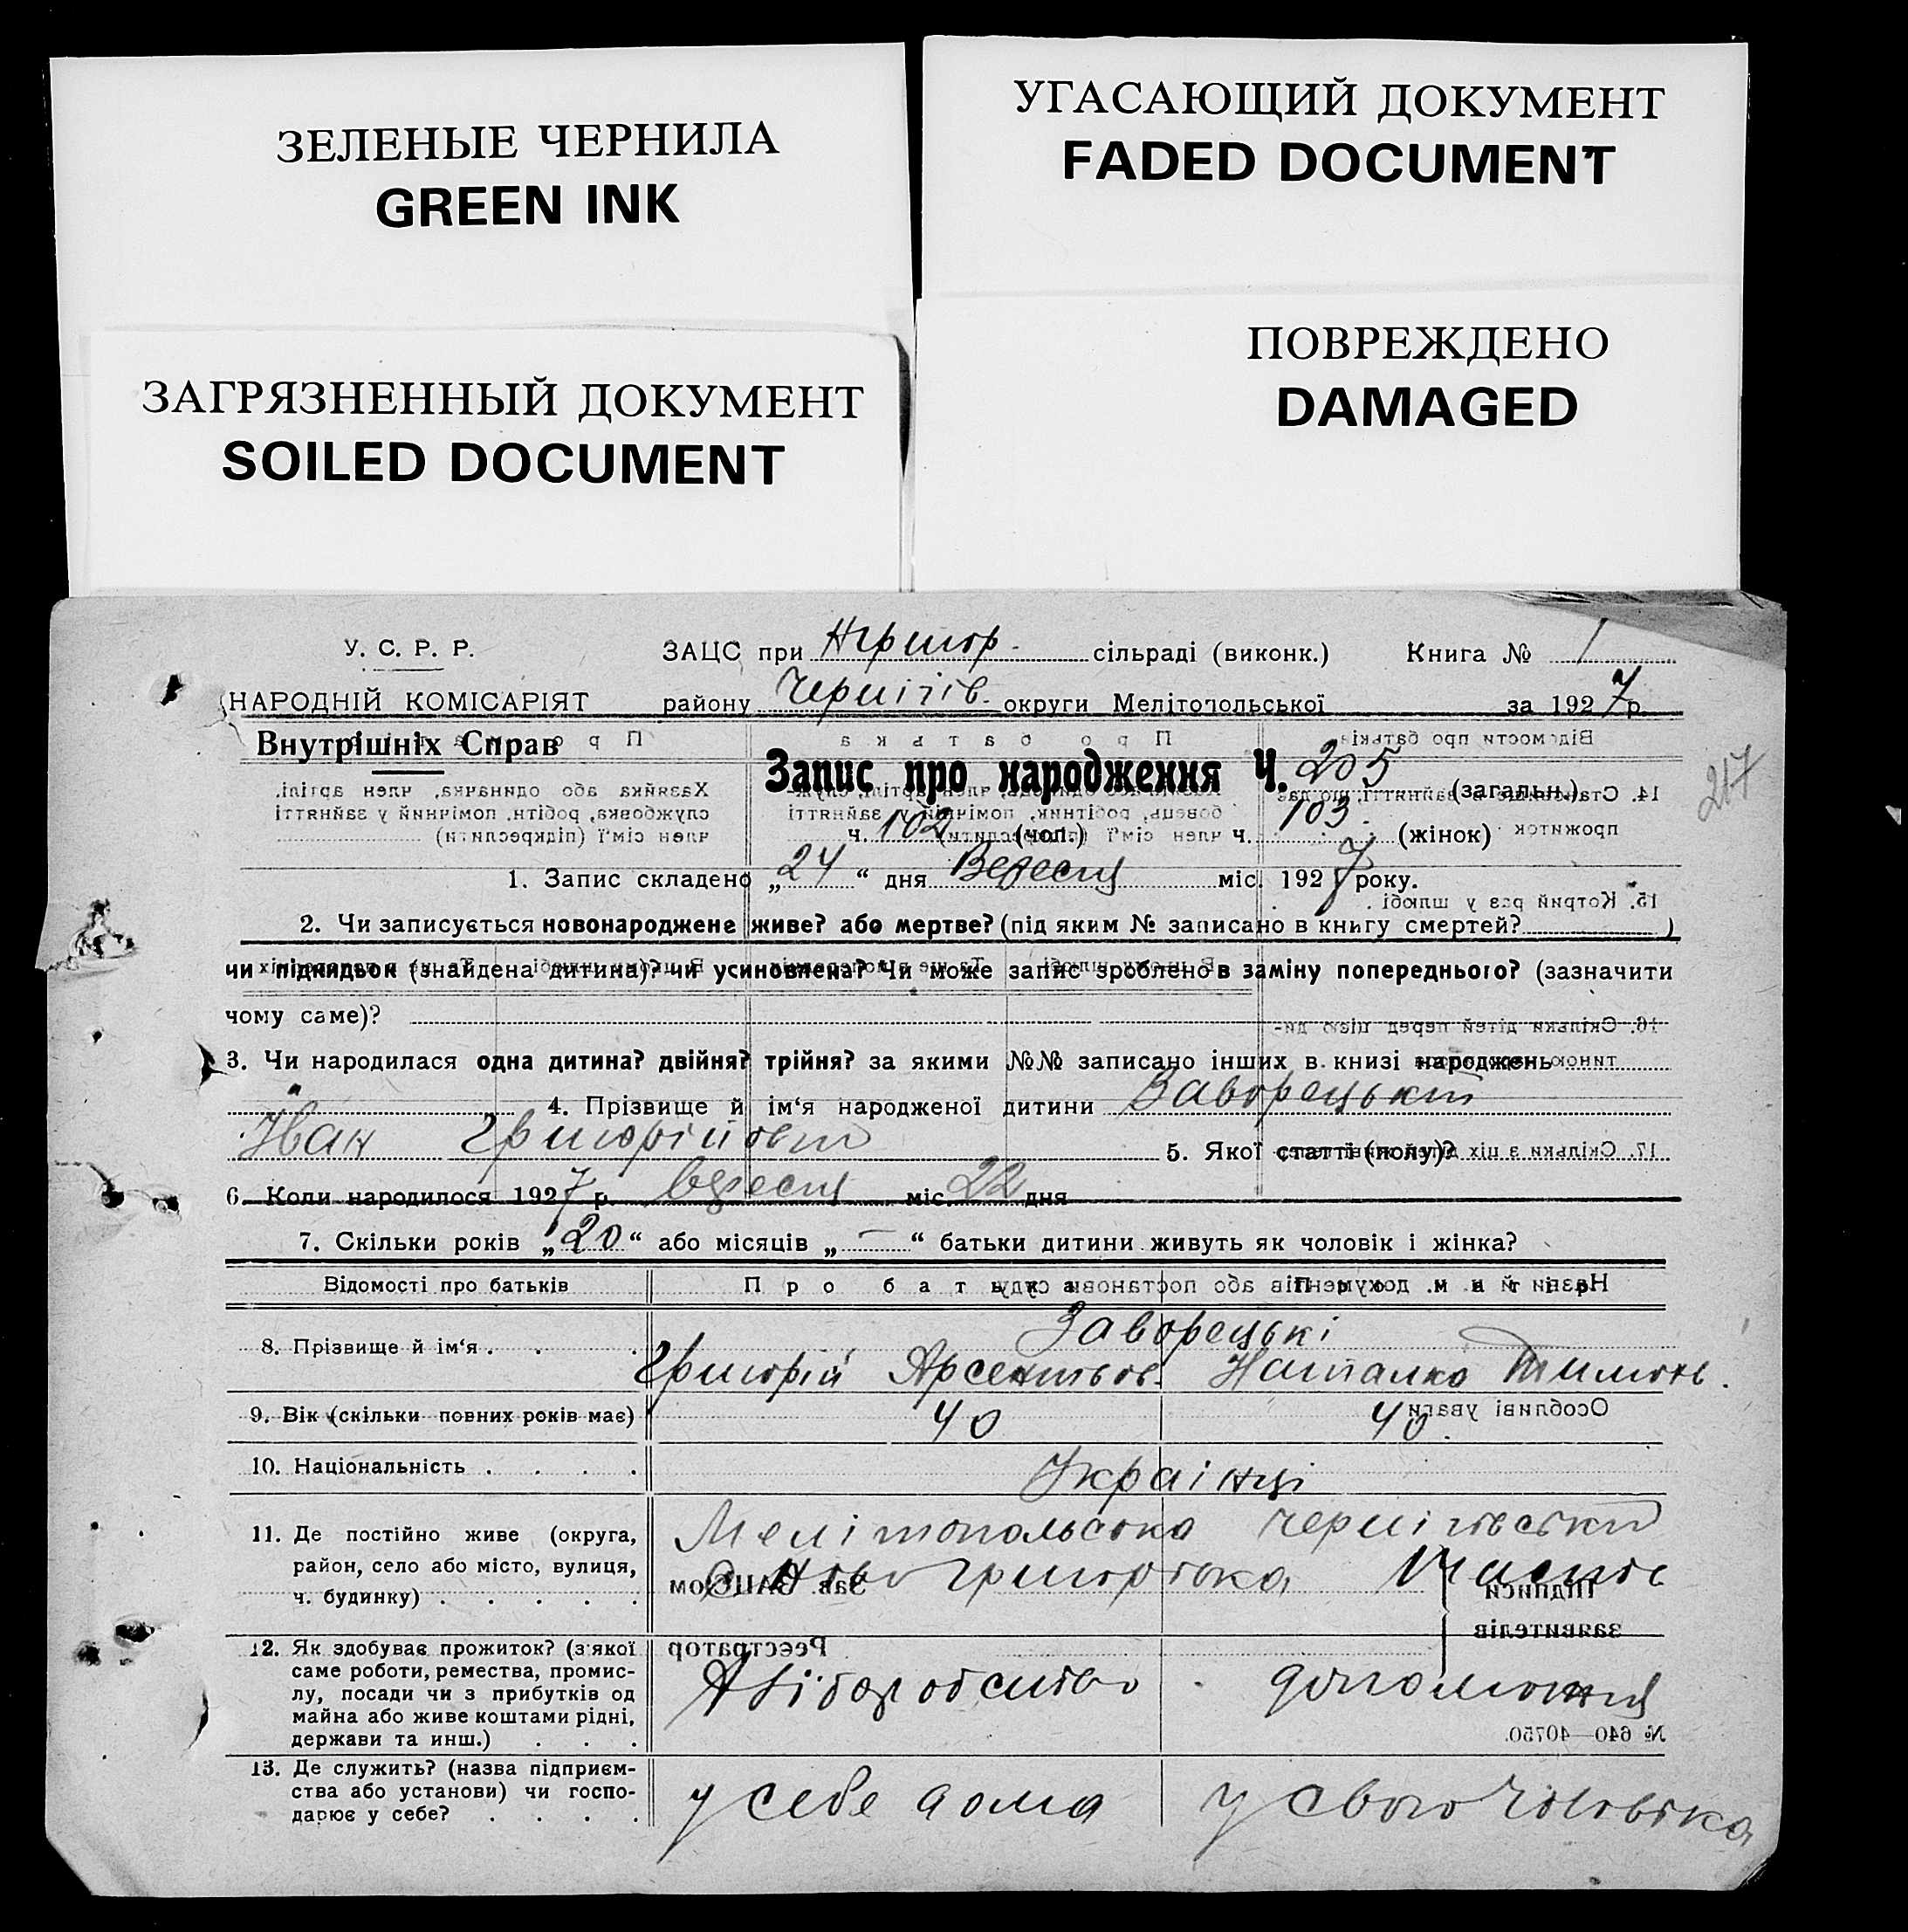 ЗЕЛЕНЫЕ ЧЕРНИЛА
GREEN INK
УГАСАЮЩИЙ ДОКУМЕНТ
FADED DOCUMENT
ЗАГРЯЗНЕННЫЙ ДОКУМЕНТ
SOILED DOCUMENT
ПОВРЕЖДЕНО
DAMAGED
У. С. Р. Р. ЗАЦС при сільраді (виконк.) Книга № 1
НАРОДНІЙ КОМІСАРІЯТ району Чернігів. округи Мелітопольської за 1927 р.
Внутрішніх Справ
Запис про народження Ч. 205 (загальн.)
217
ч. 102 (чол.) ч. 103 (жінок)
1. Запис складено „24“ дня Вересня міс. 1927 року.
2. Чи записується новонароджене живе? або мертве? (під яким № записано в книгу смертей? )
чи підкидьок (знайдена дитина)? чи усиновлена? Чи може запис зроблено в заміну попереднього? (зазначити
чому саме)?
3. Чи народилася одна дитина? двійня? трійня? за якими №№ записано інших в книзі народжень
4. Прізвище й ім‘я народженої дитини Заворецький
Іван Григорійович 5. Якої статті (полу)?
6. Коли народилося 1927 р. вересня міс. 22 дня
7. Скільки років „20“ або місяців „—“ батьки дитини живуть як чоловік і жінка?
Відомості про батьків Про батька
8. Прізвище й ім‘я . . . Заворецькі
Григорій Арсентьов. Наталка Тимохв.
9. Вік (скільки повних років має) 40 40.
10. Національність . . . . Українці
11. Де постійно живе (округа, Мелітопольська Чернігівський
район, село або місто, вулиця, Ново Григорівка
ч. будинку) . . . . .
12. Як здобуває прожиток? (з якої
саме роботи, ремества, промис-
лу, посади чи з прибутків од Хліборобство допоможня
майна або живе коштами рідні,
держави та инш.) . . .
13. Де служить? (назва підприєм-
ства або установи) чи госпо- у себе дома у свого чоловіка
дарює у себе? . . . .